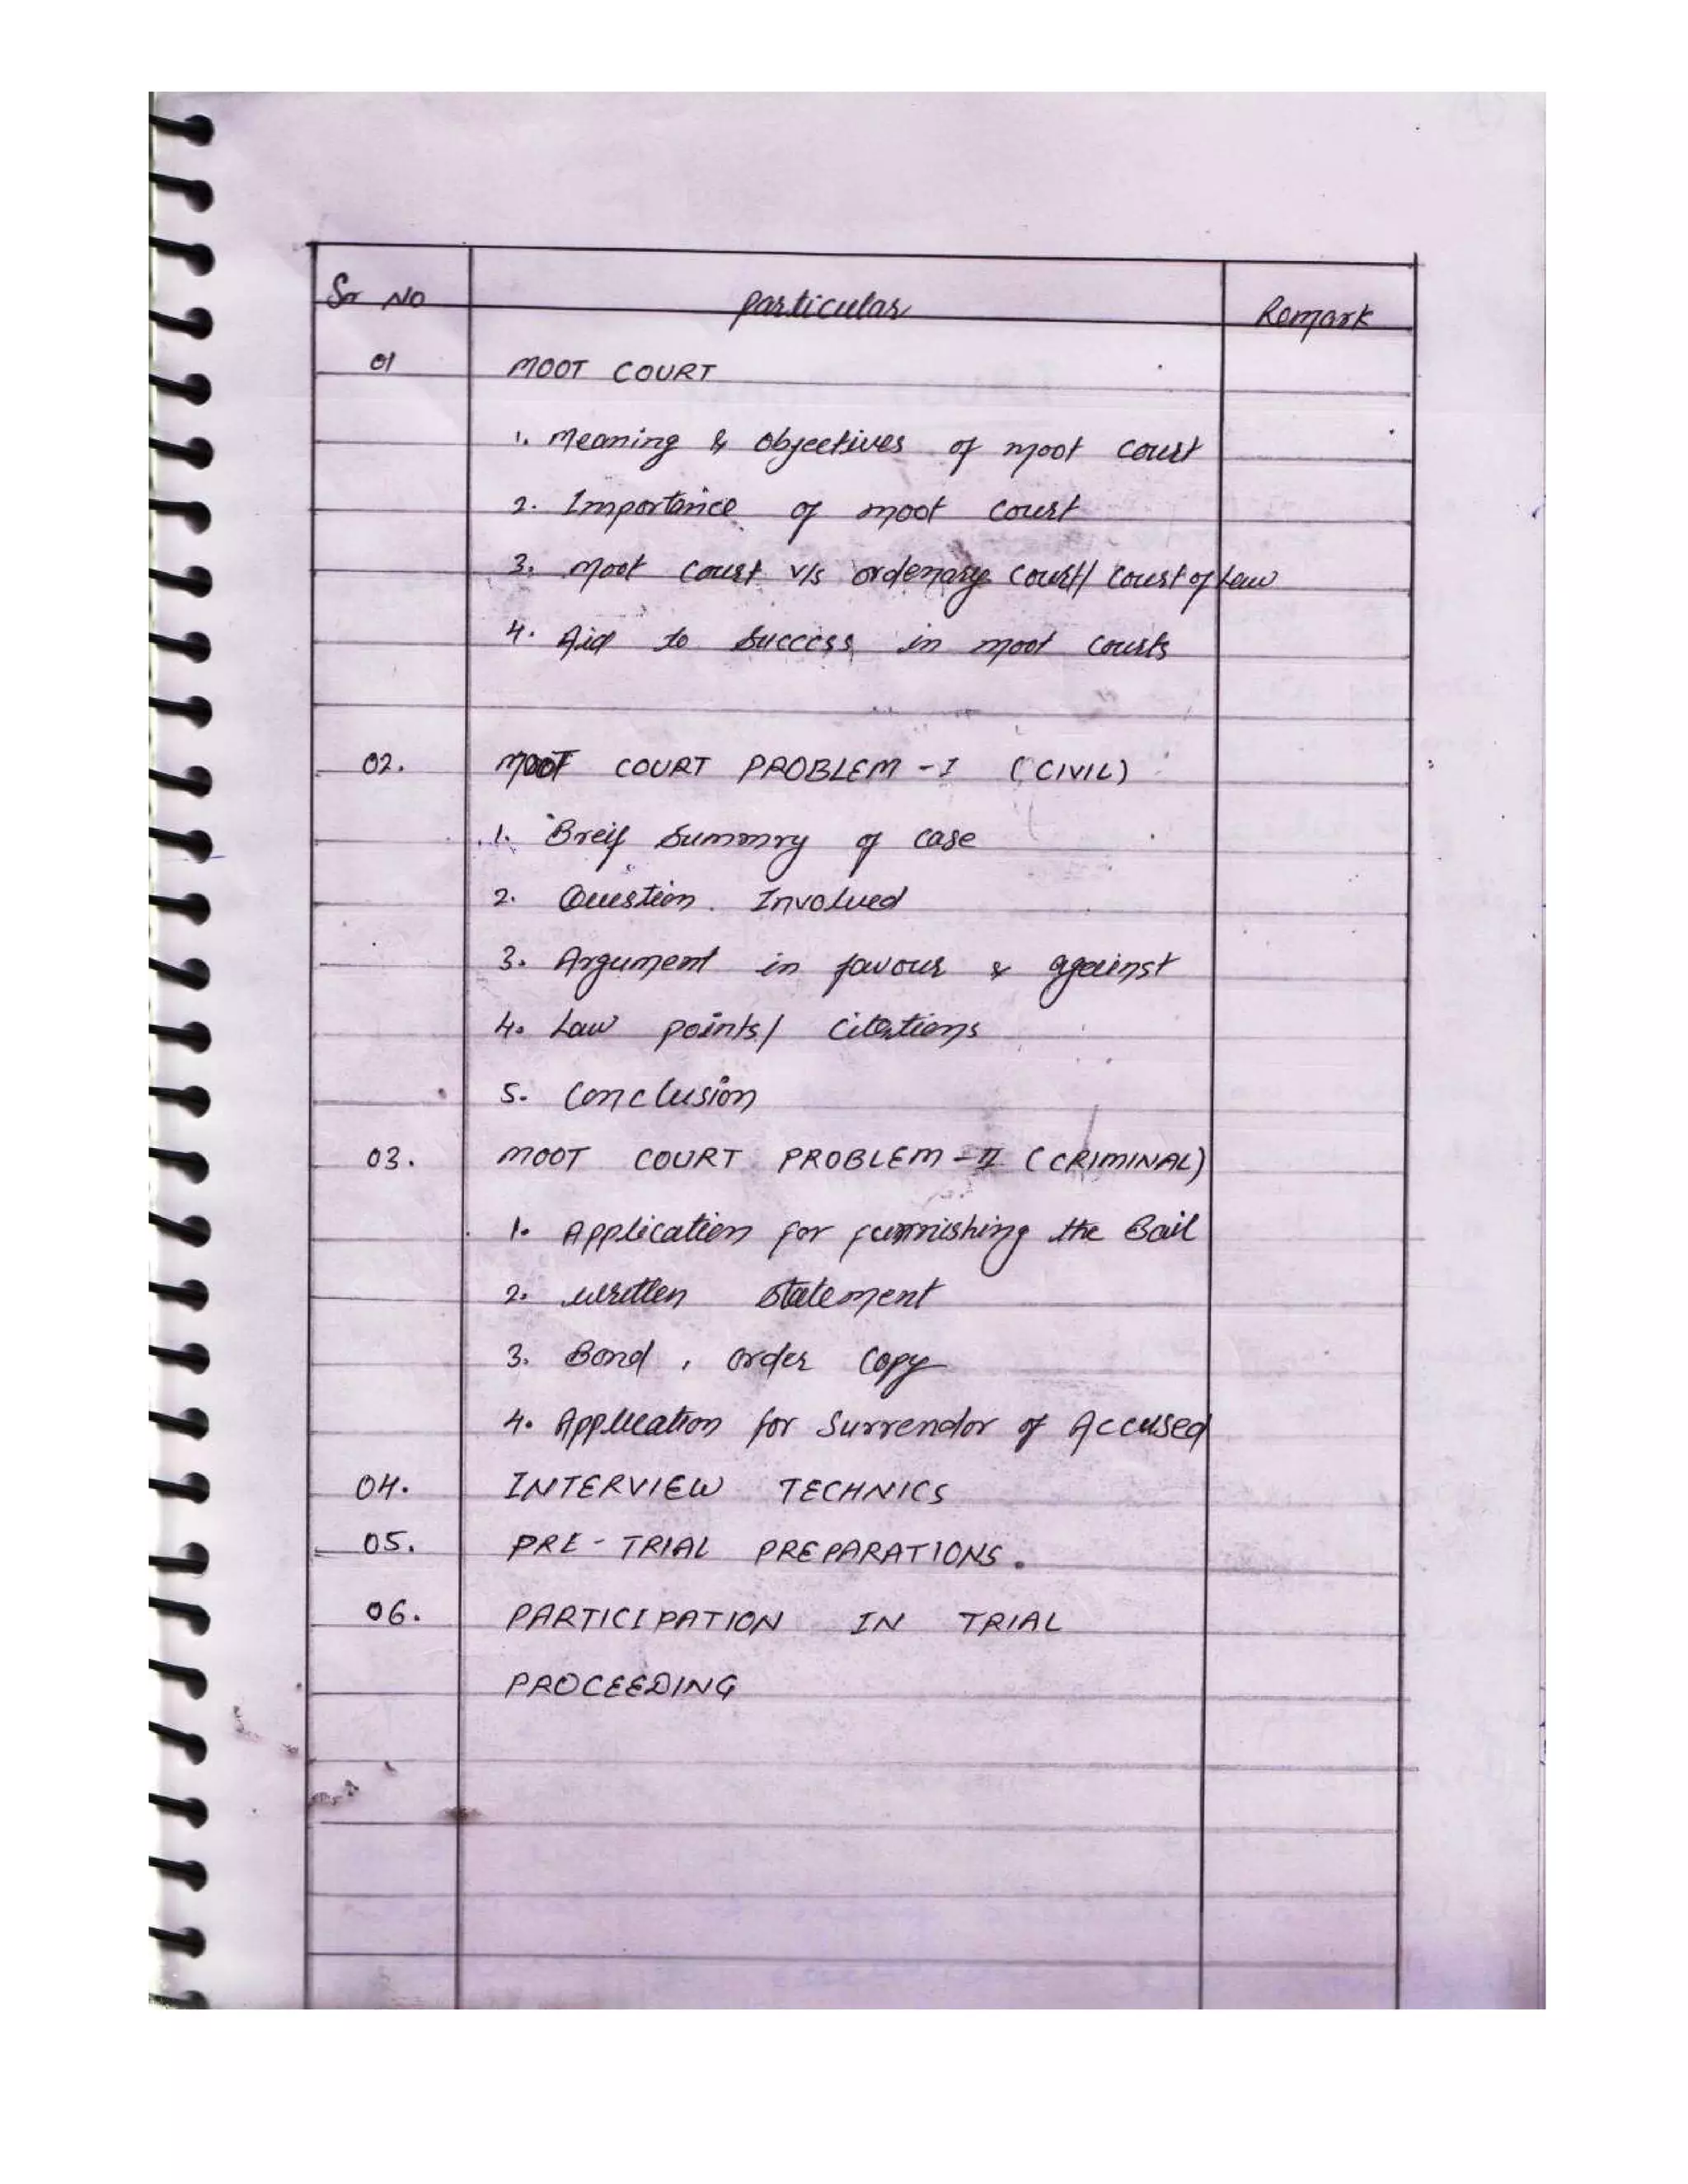 Sr No particular Remark
01 MOOT COURT
1. Meaning & Objectives of moot court
2. Importance of moot court
3. Moot court v/s ordenary court/ court of Law
4. Aid to success in moot courts
02. MOOT COURT PROBLEM - I (CIVIL)
1. Breif summry of case
2. Question Involved
3. Argument in favour & against
4. Law points/ citations
5. Conclusion
03. MOOT COURT PROBLEM - II (CRIMINAL)
1. Application for furnishing the Bail
2. written statement
3. Bond, order copy
4. Application for Surrendor of Accused
04. INTERVIEW TECHNICS
05. PRE-TRIAL PREPARATIONS.
06. PARTICIPATION IN TRIAL
PROCEEDING